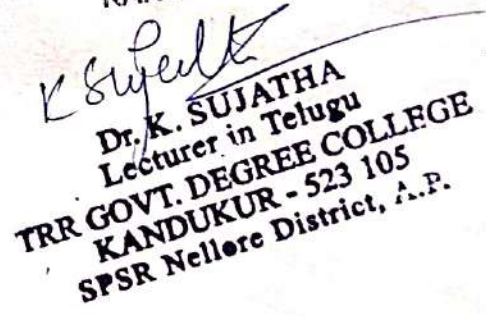 K Sujatha
Dr. K. SUJATHA
Lecturer in Telugu
TRR GOVT. DEGREE COLLEGE
KANDUKUR - 523 105
SPSR Nellore District, A.P.